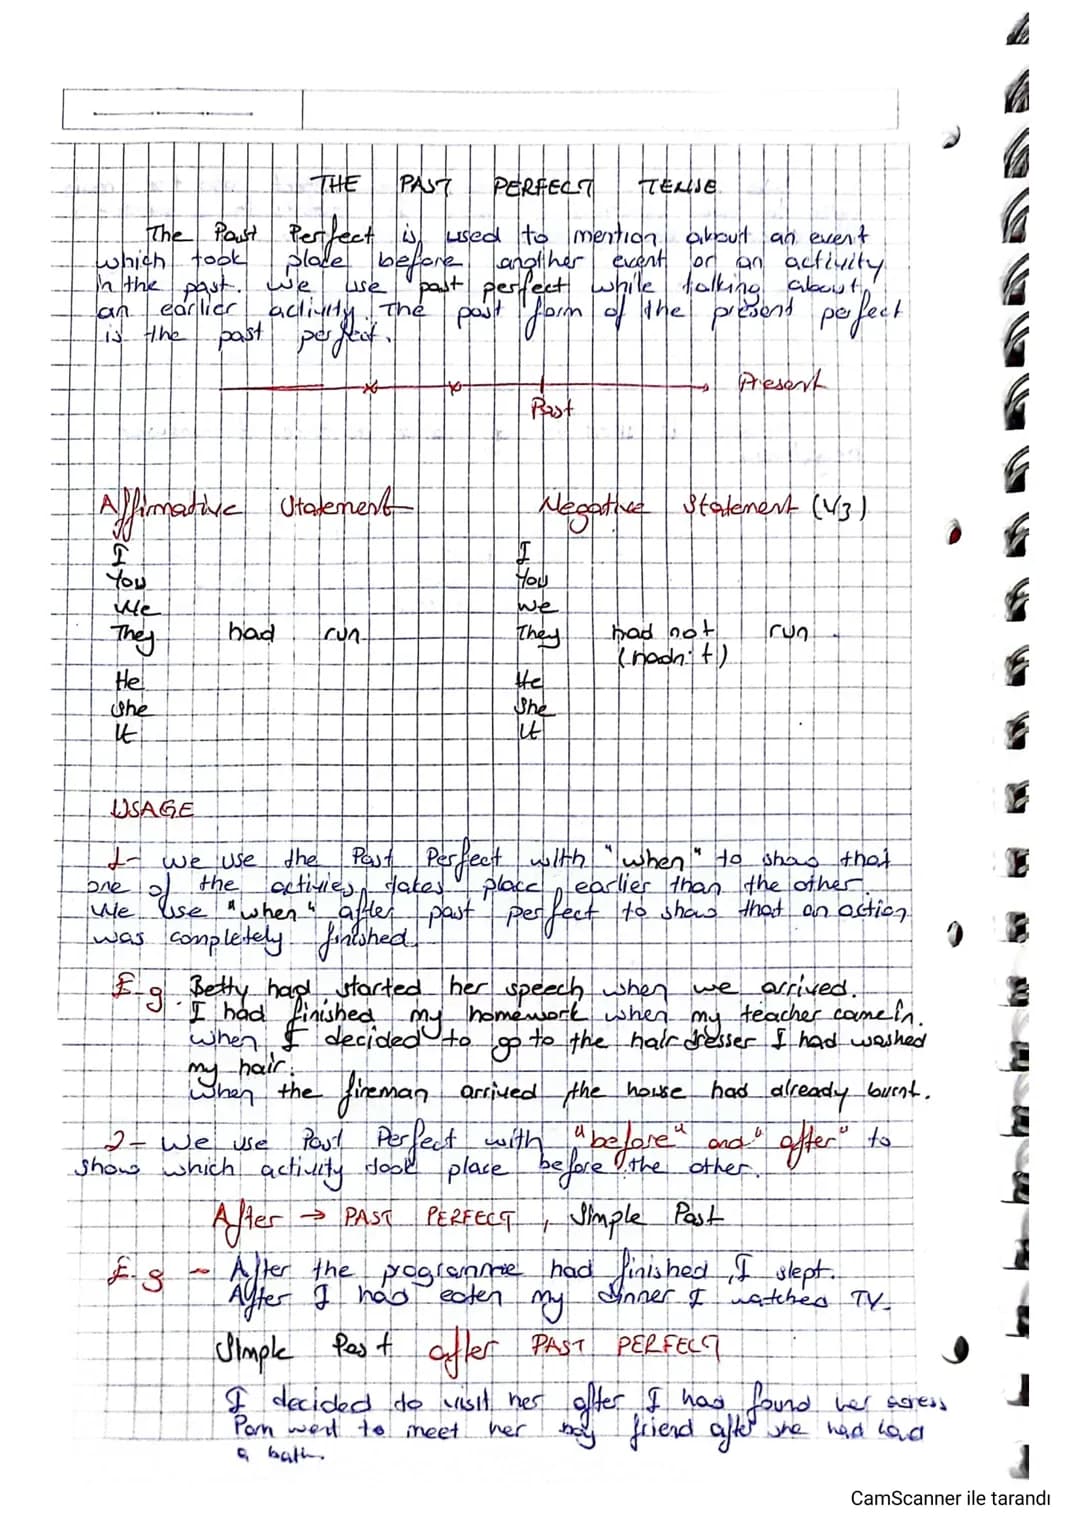 THE PAST PERFECT TENSE
The Past Perfect is used to mention about an event
which took place before another event or an activity
in the past. We use past perfect while talking about
an earlier activity. The past form of the present perfect
is the past perfect.
Present
Past
Affirmative Statement Negative Statement (V3)
I I
You You
We we
They had run They had not run
(hadn't)
He He
She She
It It
USAGE
1- We use the Past Perfect with "when" to show that
one of the activies takes place earlier than the other.
We use "when" after past perfect to show that an action
was completely finished.
E.g. Betty had started her speech when we arrived.
I had finished my homework when my teacher came in.
When I decided to go to the hairdresser I had washed
my hair.
When the fireman arrived the house had already burnt.
2- We use Past Perfect with "before" and "after" to
show which activity took place before the other.
After → PAST PERFECT, Simple Past
E.g - After the programme had finished, I slept.
After I had eaten my dinner I watched TV.
Simple Past after PAST PERFECT
I decided to visit her after I had found her
Pam went to meet her boy friend after she had had
a bath.
CamScanner ile tarandı